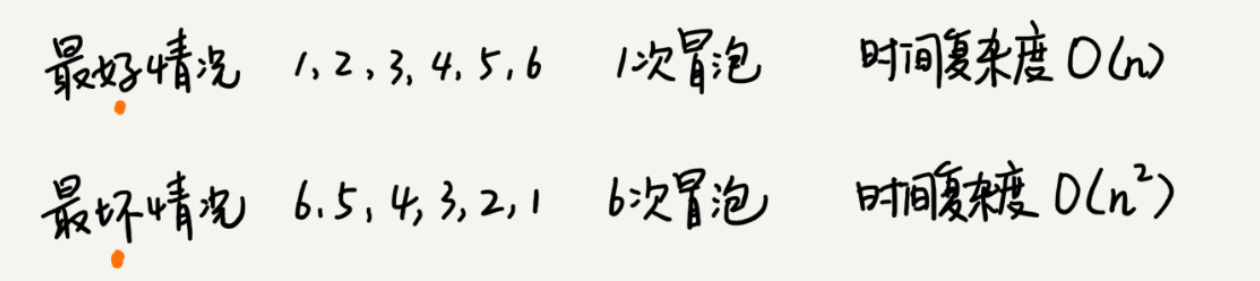 最好情况 1, 2, 3, 4, 5, 6 1次冒泡 时间复杂度 O(n)
最坏情况 6, 5, 4, 3, 2, 1 6次冒泡 时间复杂度 O(n²)